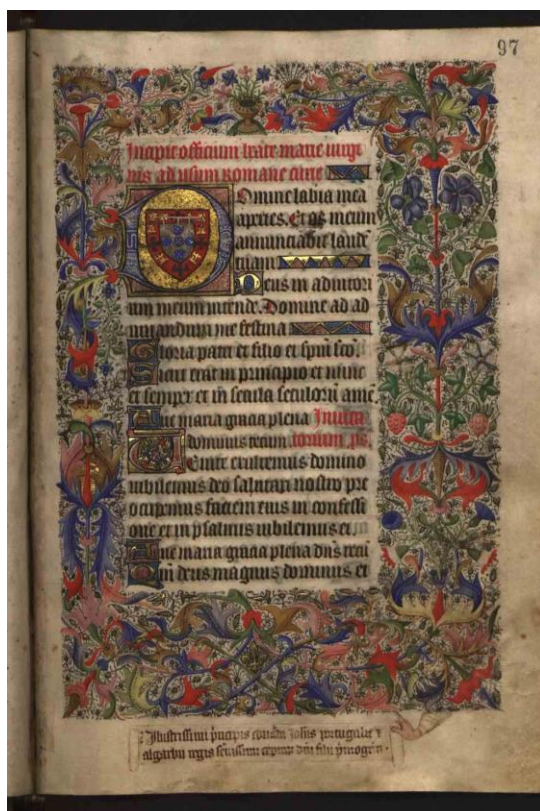 97
Incipit officium beate marie virgi
nis ad usum romane curie
Domine labia mea
aperies. Et os meum
annunciabit laudē
tuam
Deus in adiutori
um meum intende. Domine ad ad
iuuandum me festina
Gloria patri et filio et spūi scō.
Sicut erat in principio et nunc
et semper et in secula seculorū amē.
Aue maria gracia plena Inuita
dominus tecum. torium. ps.
Uenite exultemus domino
iubilemus deo salutari nostro pre
occupemus faciem eius in confessi
one et in psalmis iubilemus ei
Aue maria gracia plena dn̄s tecū
Qm̄ deus magnus dominus et
Illustrissimi prīcipis Johīs portugalie et
algarbii regis